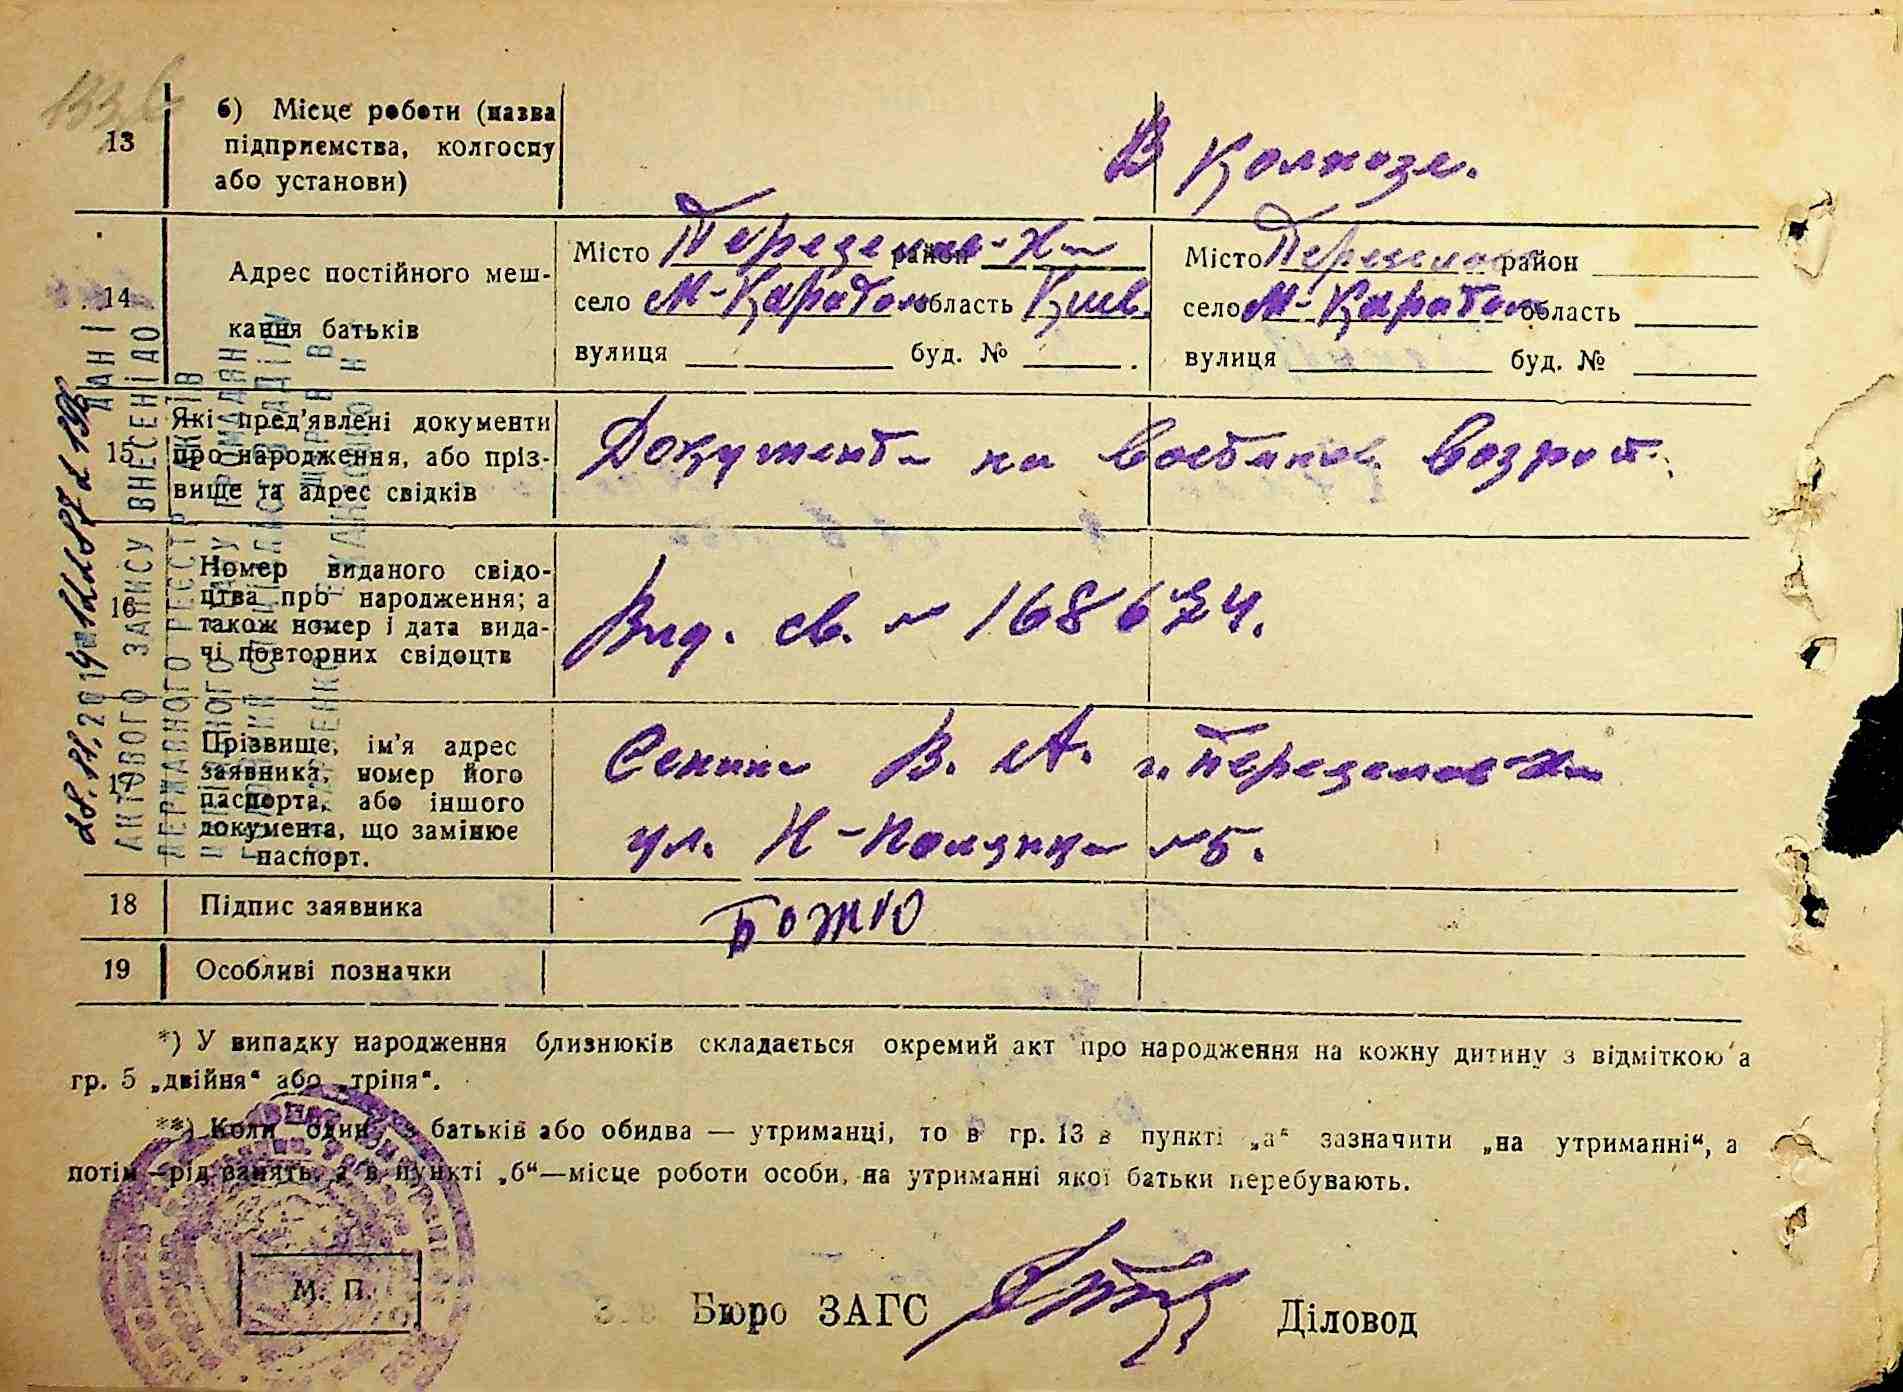 133
13
б) Місце роботи (назва
підприємства, колгоспу
або установи)
В колхозе.
14
Адрес постійного меш-
кання батьків
Місто Переяслав-Хм район
село М-Каратоль область Киев.
вулиця буд. №
Місто Переяслав район
село М-Каратоль область
вулиця буд. №
15
Які пред'явлені документи
про народження, або пріз-
вище та адрес свідків
Документ на возраст.
16
Номер виданого свідо-
цтва про народження; а
також номер і дата вида-
чі повторних свідоцтв
Выд. св. № 168674.
17
Прізвище, ім'я адрес
заявника, номер його
паспорта, або іншого
документа, що замінює
паспорт.
В. А. г. Переяслав-Хм
ул. №5.
18
Підпис заявника
Божко
19
Особливі позначки
*) У випадку народження близнюків складається окремий акт про народження на кожну дитину з відміткою а
гр. 5 „двійня“ або „тріня“.
**) Коли один з батьків або обидва — утриманці, то в гр. 13 в пункті „а“ зазначити „на утриманні“, а
потім —рід занять, а в пункті „б“—місце роботи особи, на утриманні якої батьки перебувають.
М. П.
Зав Бюро ЗАГС
Діловод
28.11.2014
ДАНІ
АКТОВОГО ЗАПИСУ ВНЕСЕНІ ДО
ДЕРЖАВНОГО РЕЄСТРУ
ГРОМАДЯН